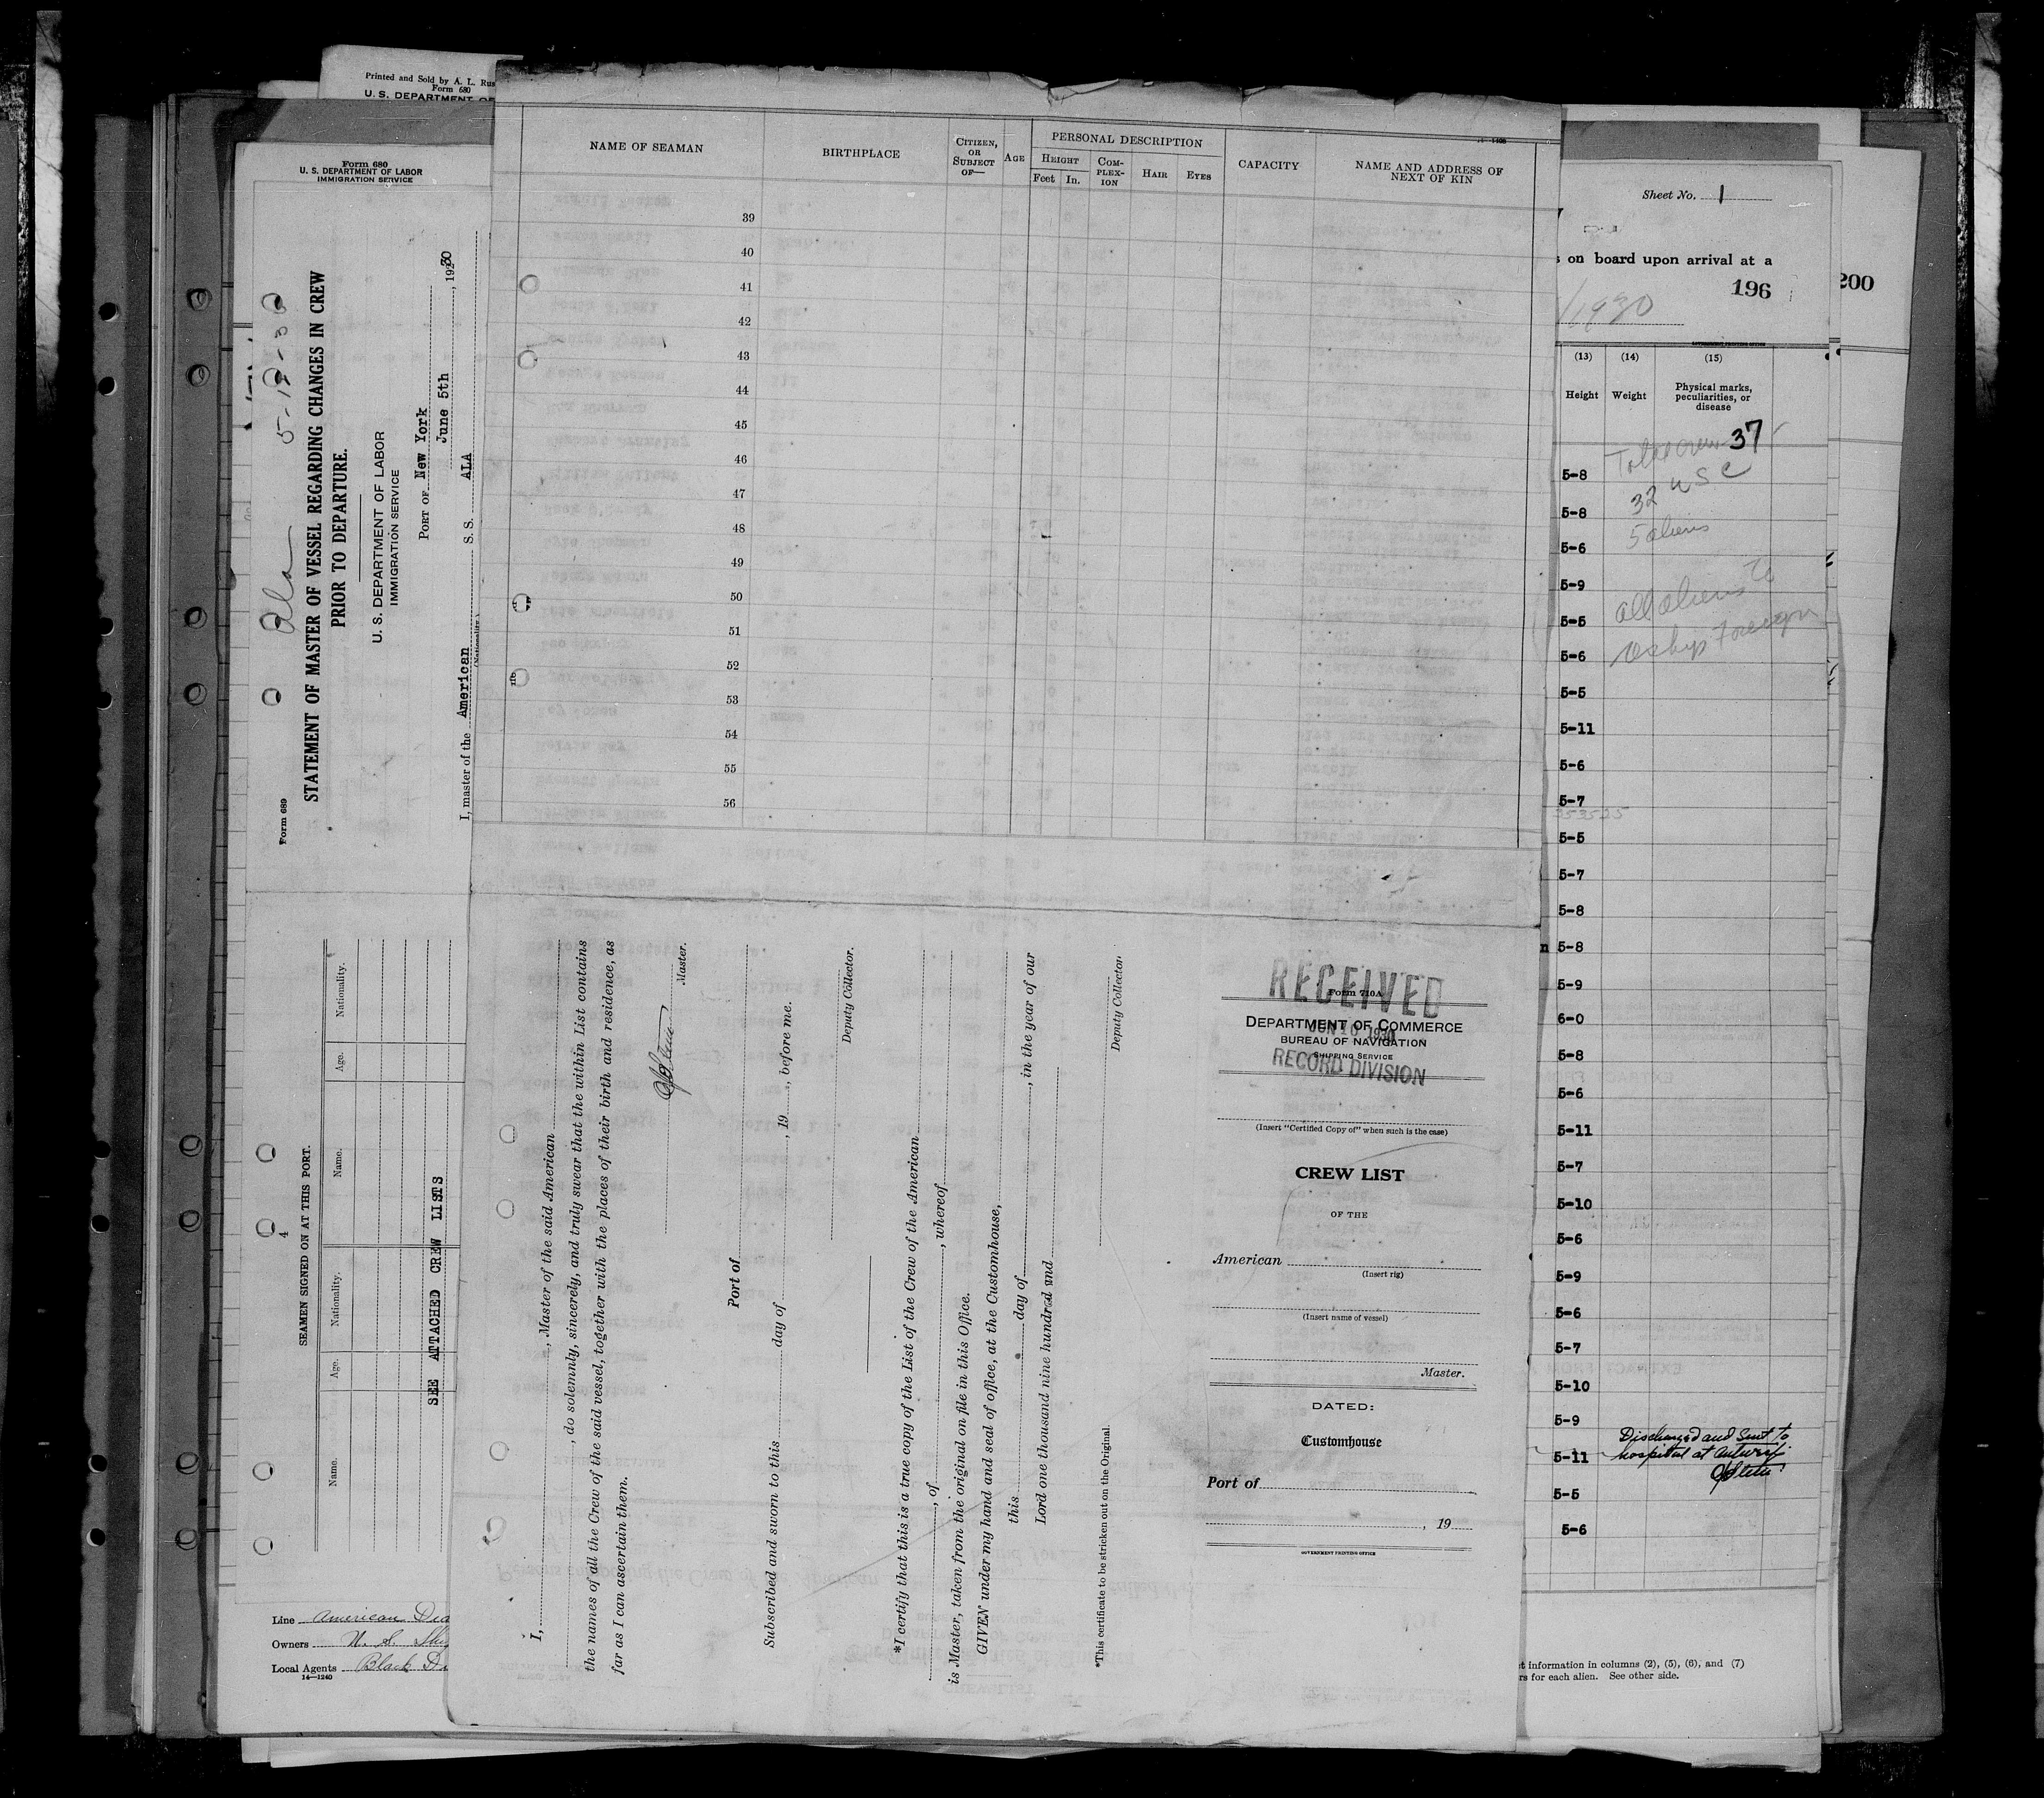 Printed and Sold by A. L. Rus
Form 680
U. S. DEPARTMENT OF
Form 680
U. S. DEPARTMENT OF LABOR
IMMIGRATION SERVICE
Ala 5-19-30
Form 689
STATEMENT OF MASTER OF VESSEL REGARDING CHANGES IN CREW
PRIOR TO DEPARTURE.
U. S. DEPARTMENT OF LABOR
IMMIGRATION SERVICE
PORT OF New York
June 5th, 1930
I, master of the American S. S. ALA
(Nationality)
4
SEAMEN SIGNED ON AT THIS PORT.
Name. Age. Nationality. Name. Age. Nationality.
SEE ATTACHED CREW LISTS
Line American Dia
Owners U. S. Shi
Local Agents Black Di
14—1240
NAME OF SEAMAN
BIRTHPLACE
CITIZEN, OR SUBJECT OF—
AGE
PERSONAL DESCRIPTION
HEIGHT
Feet In.
COM-PLEX-ION
HAIR
EYES
CAPACITY
NAME AND ADDRESS OF NEXT OF KIN
39
40
41
42
43
44
45
46
47
48
49
50
51
52
53
54
55
56
I, , Master of the said American
, do solemnly, sincerely, and truly swear that the within List contains
the names of all the Crew of the said vessel, together with the places of their birth and residence, as
far as I can ascertain them.
Master.
Port of
Subscribed and sworn to this day of , 19 , before me.
Deputy Collector.
*I certify that this is a true copy of the List of the Crew of the American
, of , whereof
is Master, taken from the original on file in this Office.
GIVEN under my hand and seal of office, at the Customhouse,
this day of , in the year of our
Lord one thousand nine hundred and
Deputy Collector.
*This certificate to be stricken out on the Original.
RECEIVED
Form 710A
DEPARTMENT OF COMMERCE
JUN 10 1930
BUREAU OF NAVIGATION
SHIPPING SERVICE
RECORD DIVISION
(Insert "Certified Copy of" when such is the case)
CREW LIST
OF THE
American
(Insert rig)
(Insert name of vessel)
Master.
DATED:
Customhouse
Port of
, 19
GOVERNMENT PRINTING OFFICE
Sheet No. 1
s on board upon arrival at a
196
200
1930
(13) (14) (15)
Height Weight Physical marks, peculiarities, or disease
Total crew 37
5-8
32 USC
5-8
5 aliens
5-6
5-9
all aliens to
5-5
reship foreign
5-6
5-5
5-11
5-6
5-7
5-5
5-7
5-8
n 5-8
5-9
6-0
5-8
5-6
5-11
5-7
5-10
5-6
5-9
5-6
5-7
5-10
5-9
Discharged and Sent to
5-11 hospital at Antwerp.
5-5
5-6
t information in columns (2), (5), (6), and (7)
rs for each alien. See other side.